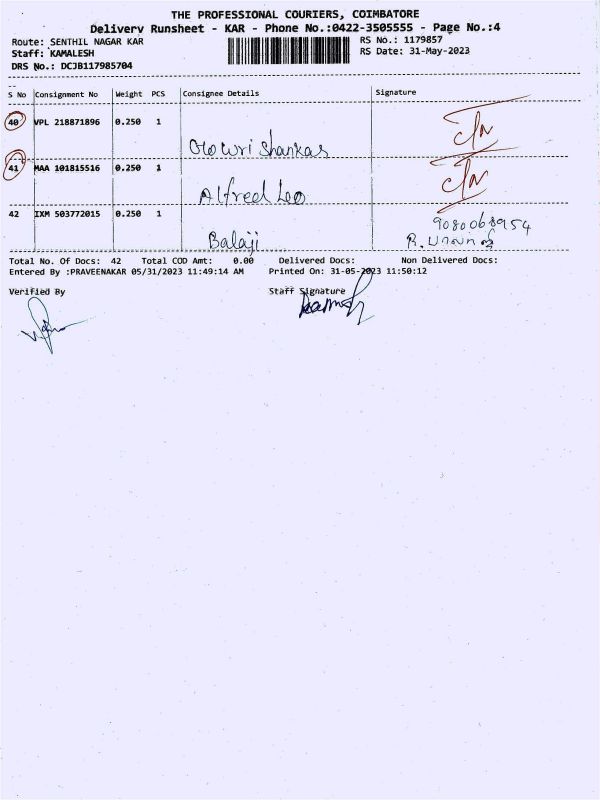 THE PROFESSIONAL COURIERS, COIMBATORE
Delivery Runsheet - KAR - Phone No.:0422-3505555 - Page No.:4
Route: SENTHIL NAGAR KAR RS No.: 1179857
Staff: KAMALESH RS Date: 31-May-2023
DRS No.: DCJB117985704
S No Consignment No Weight PCS Consignee Details Signature
40 VPL 218871896 0.250 1
Gowri Shankar
41 MAA 101815516 0.250 1
Alfred Leo
42 IXM 503772015 0.250 1 9080068954
Balaji R. பாலாஜி
Total No. Of Docs: 42 Total COD Amt: 0.00 Delivered Docs: Non Delivered Docs:
Entered By :PRAVEENAKAR 05/31/2023 11:49:14 AM Printed On: 31-05-2023 11:50:12
Verified By Staff Signature